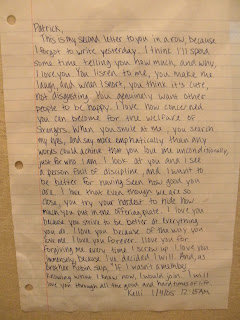 Patrick,
This is my second letter to you in a row, because
I forgot to write yesterday. I think I'll spend
some time telling you how much, and why,
I love you. You listen to me, you make me
laugh, and when I snort, you think it's cute,
not disgusting. You genuinely want other
people to be happy. I love how concerned
you can become for the welfare of
strangers. When you smile at me, you search
my eyes, and say more emphatically than any
words could achieve that you love me unconditionally,
just for who I am. I look at you and I see
a person full of discipline, and I want to
be better for having seen how good you
are. I love that even though we are so
close, you try your hardest to hide how
much you put in the offering plate. I love you
because you strive to be better at everything
you do. I love you because of the way you
love me. I love you forever. I love you for
forgiving me every time I screw up. I love you
immensely, because I've decided I will. And, as
brother says, "If I wasn't a
knowing what I know now, I would join." I will
love you through all the good and hard times of life.
Kelli 12:15AM